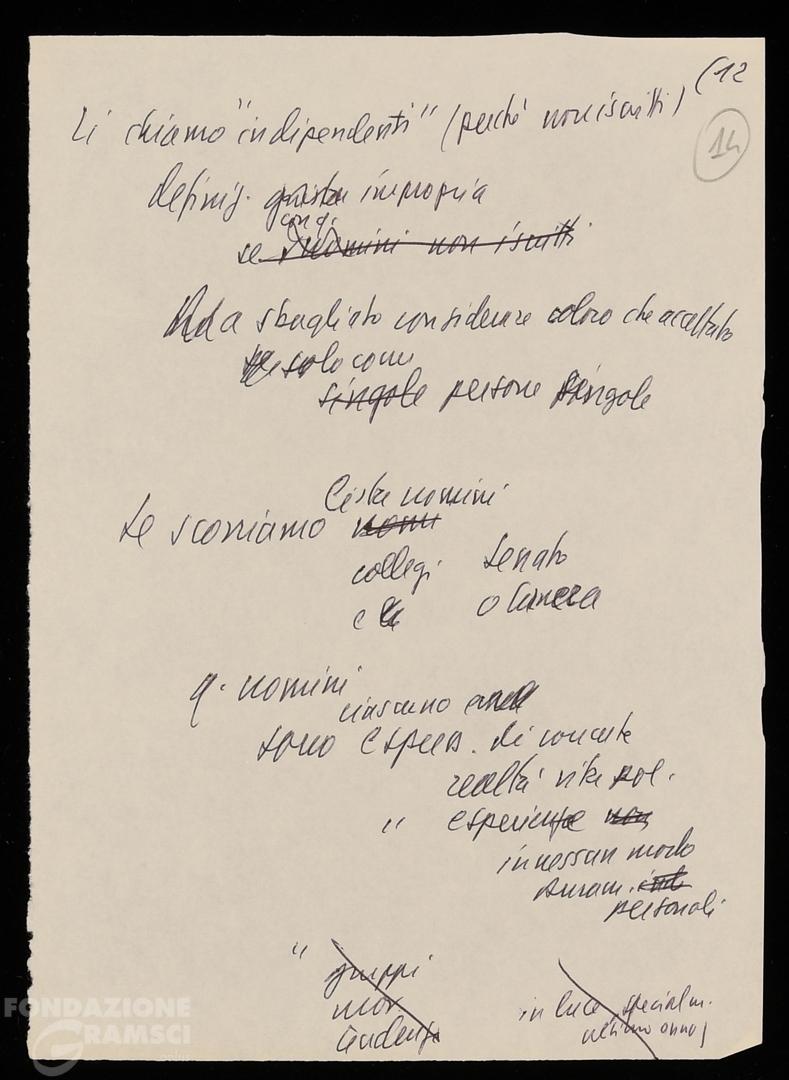 (12
14
Li chiamo "indipendenti" (perché non iscritti)
definiz. impropria
con q.
se uomini non iscritti
Ma sbagliato considerare coloro che accettato
solo come
singole persone singole
Se scorriamo lista nomini
nomi
collegi Senato
e o Camera
q. uomini
ciascuno
sono espress. di concrete
realtà vita pol.
" esperienze non
in nessun modo
puram. ind
personali
" gruppi
mov
tendenze
in luce specialm.
ultimo anno)
FONDAZIONE
GRAMSCI